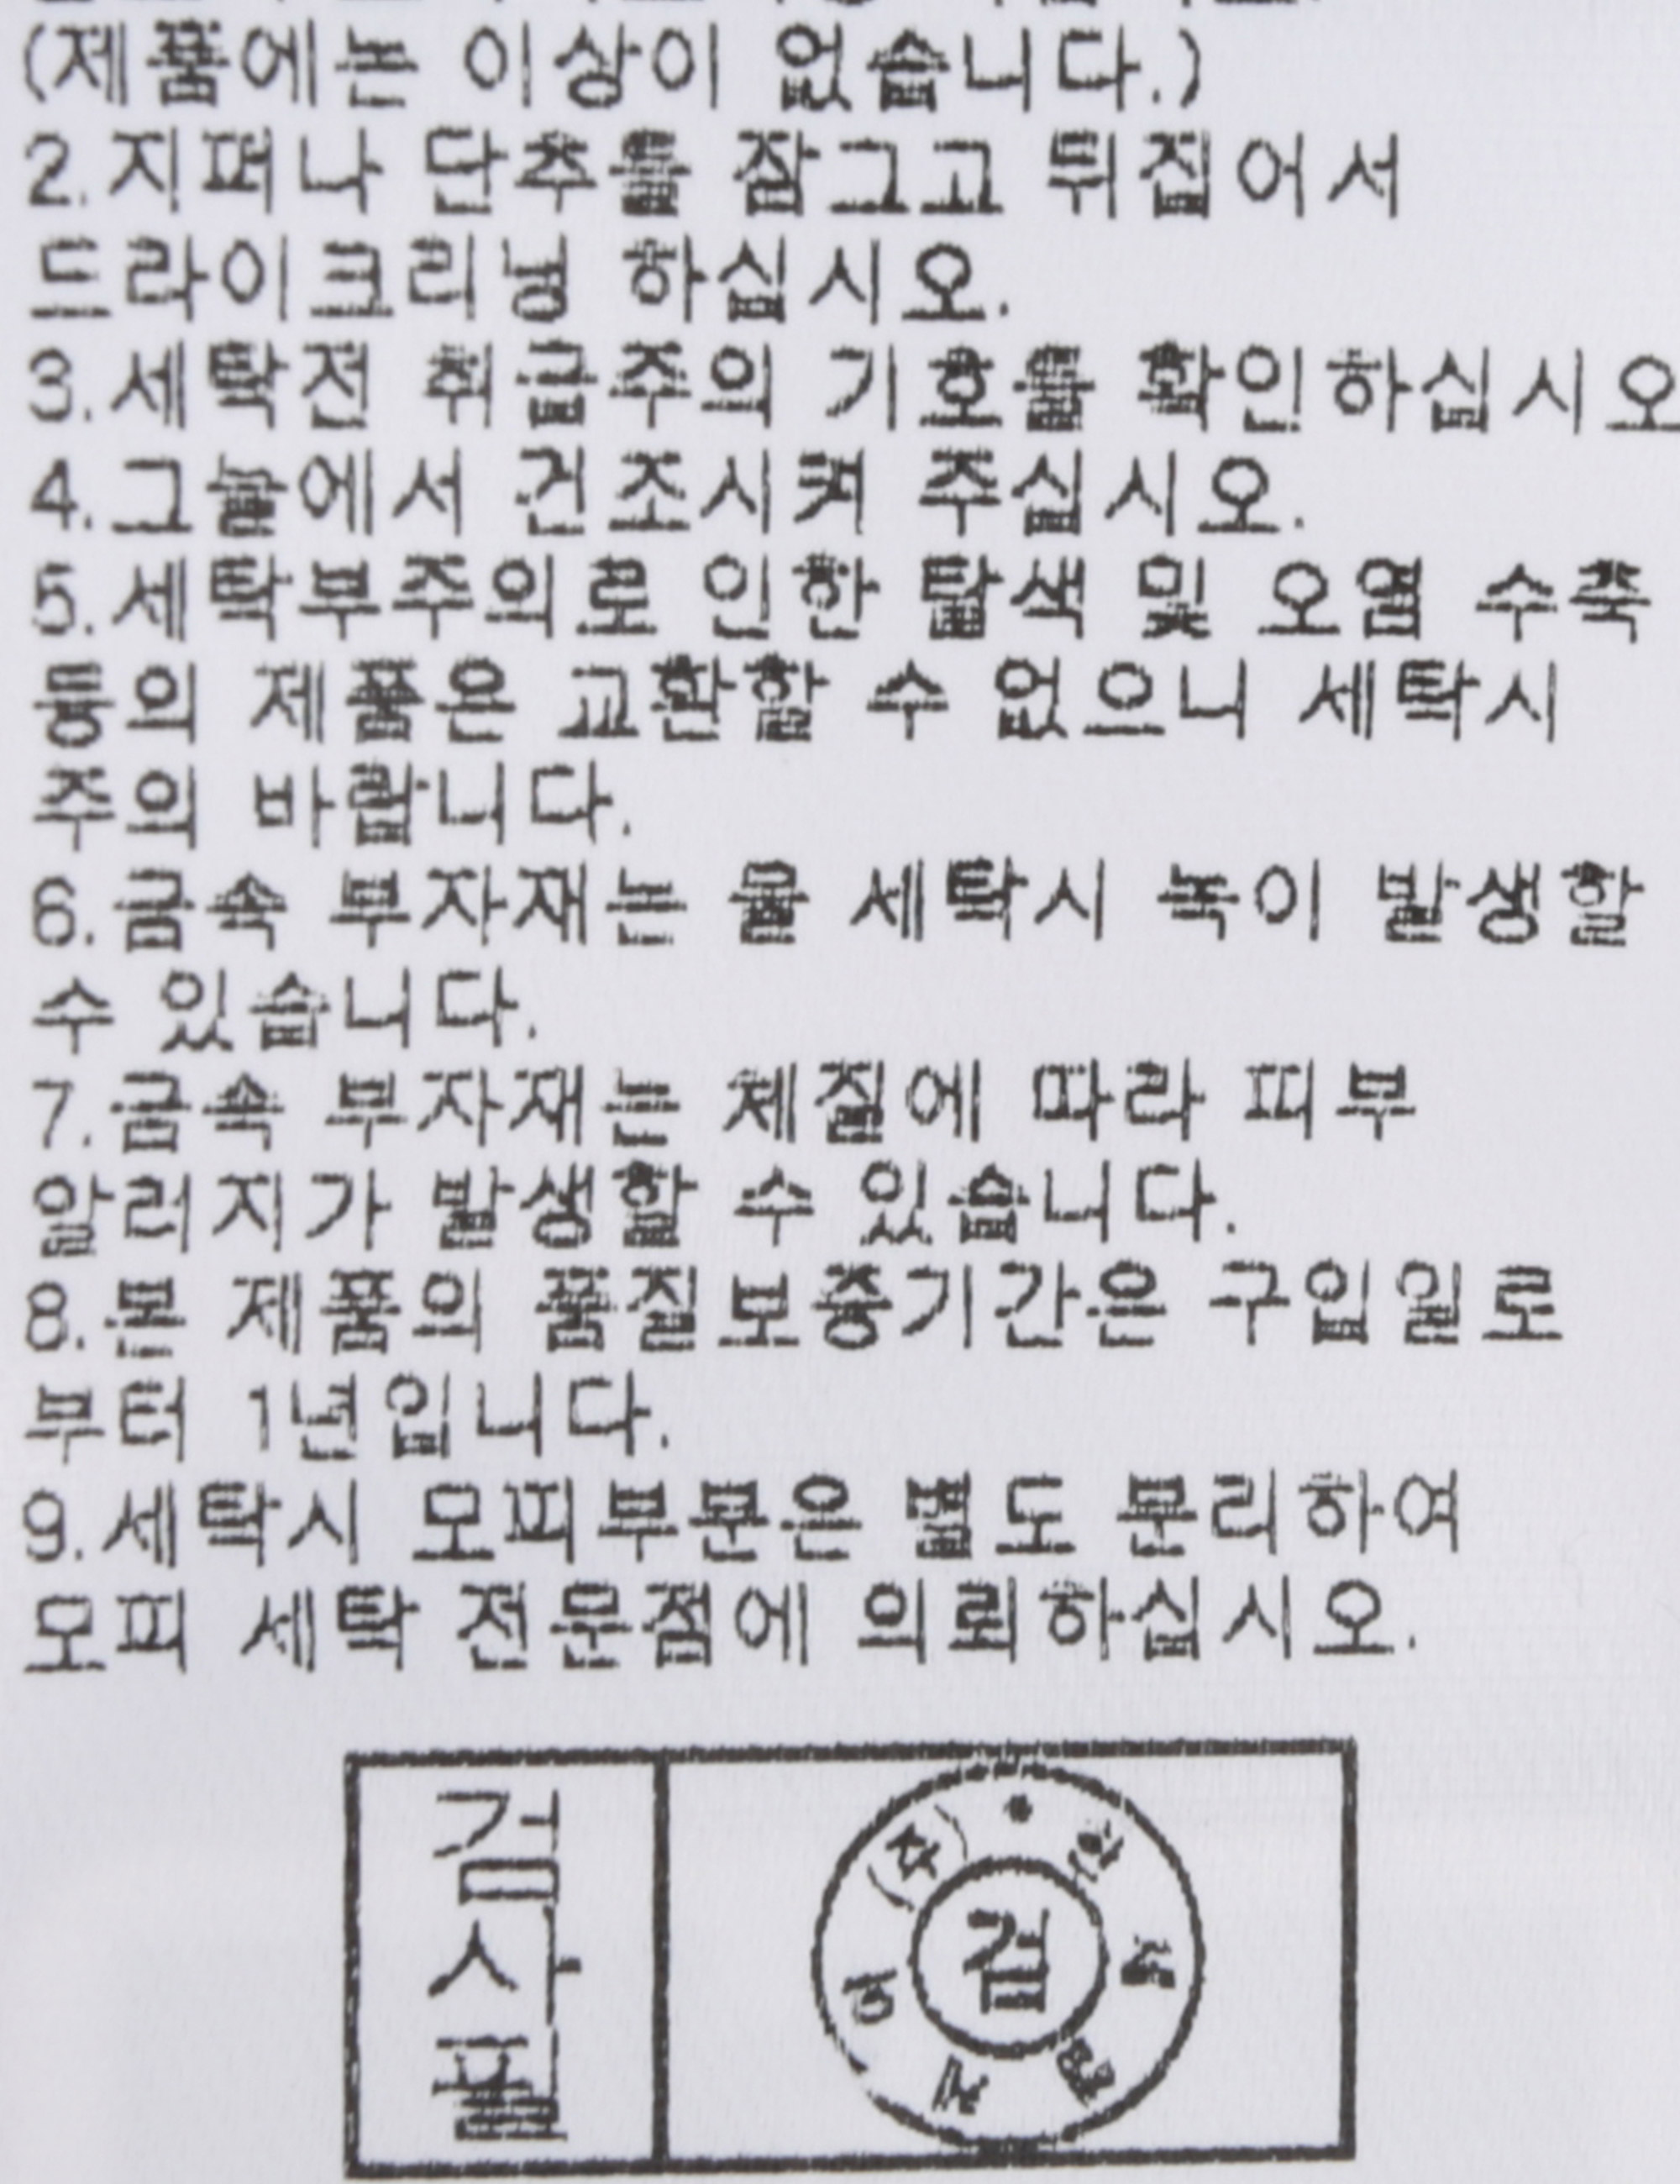 (제품에는 이상이 없습니다.)
2.지퍼나 단추를 잠그고 뒤집어서
드라이크리닝 하십시오.
3.세탁전 취급주의 기호를 확인하십시오
4.그늘에서 건조시켜 주십시오.
5.세탁부주의로 인한 탈색 및 오염 수축
등의 제품은 교환할 수 없으니 세탁시
주의 바랍니다.
6.금속 부자재는 물 세탁시 녹이 발생할
수 있습니다.
7.금속 부자재는 체질에 따라 피부
알러지가 발생할 수 있습니다.
8.본 제품의 품질보증기간은 구입일로
부터 1년입니다.
9.세탁시 모피부분은 별도 분리하여
모피 세탁 전문점에 의뢰하십시오.
검사필
검